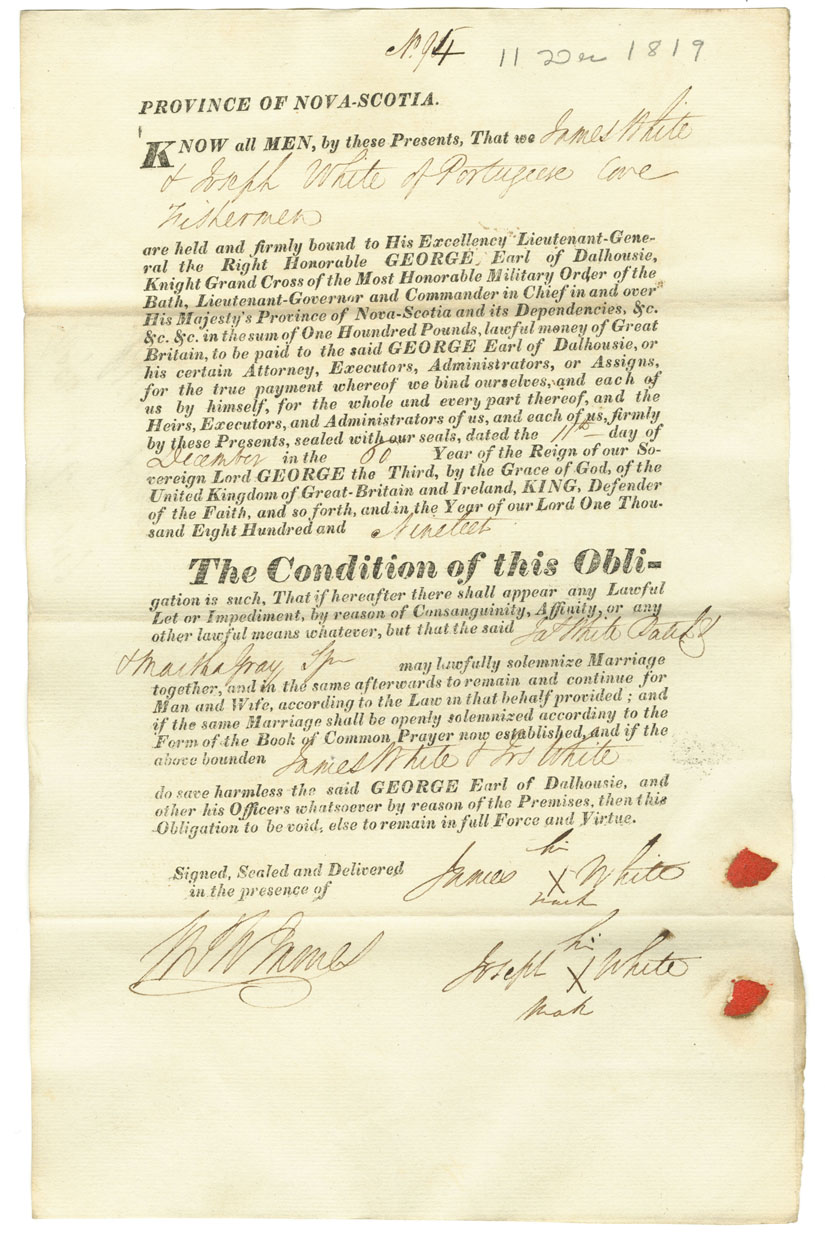 No. 94 11 Dec 1819
PROVINCE OF NOVA-SCOTIA.
KNOW all MEN, by these Presents, That we James White
& Joseph White of Portuguese Cove
Fishermen
are held and firmly bound to His Excellency Lieutenant-Gene-
ral the Right Honorable GEORGE Earl of Dalhousie,
Knight Grand Cross of the Most Honorable Military Order of the
Bath, Lieutenant-Governor and Commander in Chief in and over
His Majesty's Province of Nova-Scotia and its Dependencies, &c.
&c. &c. in the sum of One Houndred Pounds, lawful money of Great
Britain, to be paid to the said GEORGE Earl of Dalhousie, or
his certain Attorney, Executors, Administrators, or Assigns,
for the true payment whereof we bind ourselves, and each of
us by himself, for the whole and every part thereof, and the
Heirs, Executors, and Administrators of us, and each of us, firmly
by these Presents, sealed with our seals, dated the 11th day of
December in the 60 Year of the Reign of our So-
vereign Lord GEORGE the Third, by the Grace of God, of the
United Kingdom of Great-Britain and Ireland, KING, Defender
of the Faith, and so forth, and in the Year of our Lord One Thou-
sand Eight Hundred and Nineteet
The Condition of this Obli-
gation is such, That if hereafter there shall appear any Lawful
Let or Impediment, by reason of Consanguinity, Affinity, or any
other lawful means whatever, but that the said Jas White
& Martha Gray Spr may lawfully solemnize Marriage
together, and in the same afterwards to remain and continue for
Man and Wife, according to the Law in that behalf provided; and
if the same Marriage shall be openly solemnized accordiny to the
Form of the Book of Common Prayer now established, and if the
above bounden James White & Jos White
do save harmless the said GEORGE Earl of Dalhousie, and
other his Officers whatsoever by reason of the Premises, then this
Obligation to be void, else to remain in full Force and Virtue.
Signed, Sealed and Delivered
in the presence of
James his X mark White
James
Joseph his X mark White